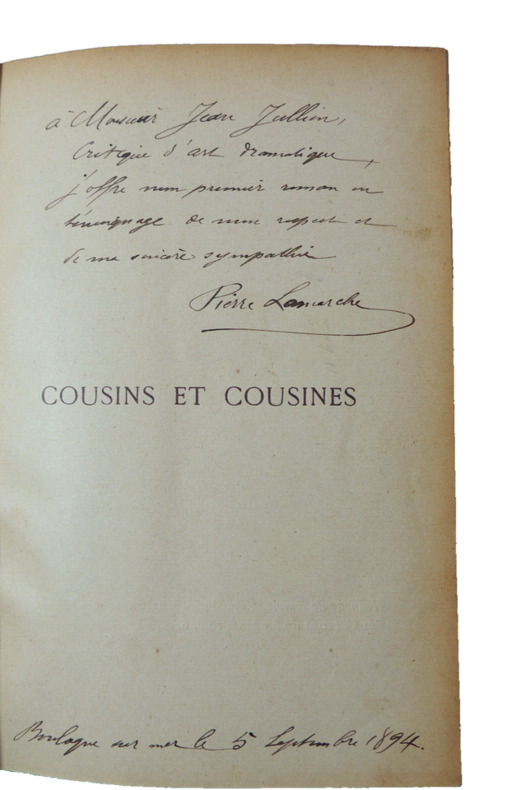 à Monsieur Jean Jullien,
Critique d'art dramatique,
j'offre mon premier roman en
témoignage de mon respect et
de ma sincère sympathie
Pierre Lamarche
COUSINS ET COUSINES
Boulogne sur mer le 5 Septembre 1894.